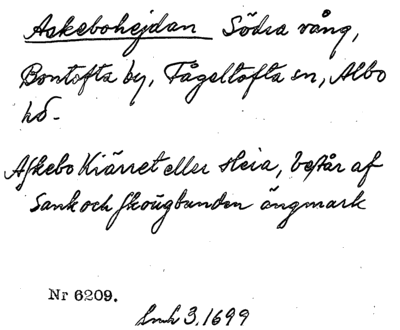 Askebohejdan Södra vång,
Bontofta by, Fågeltofta sn, Albo
hd.
Askebo Kiärret eller Heia, består af
Sank och skougbunden ängmark
Nr 6209.
Lmh 3, 1699